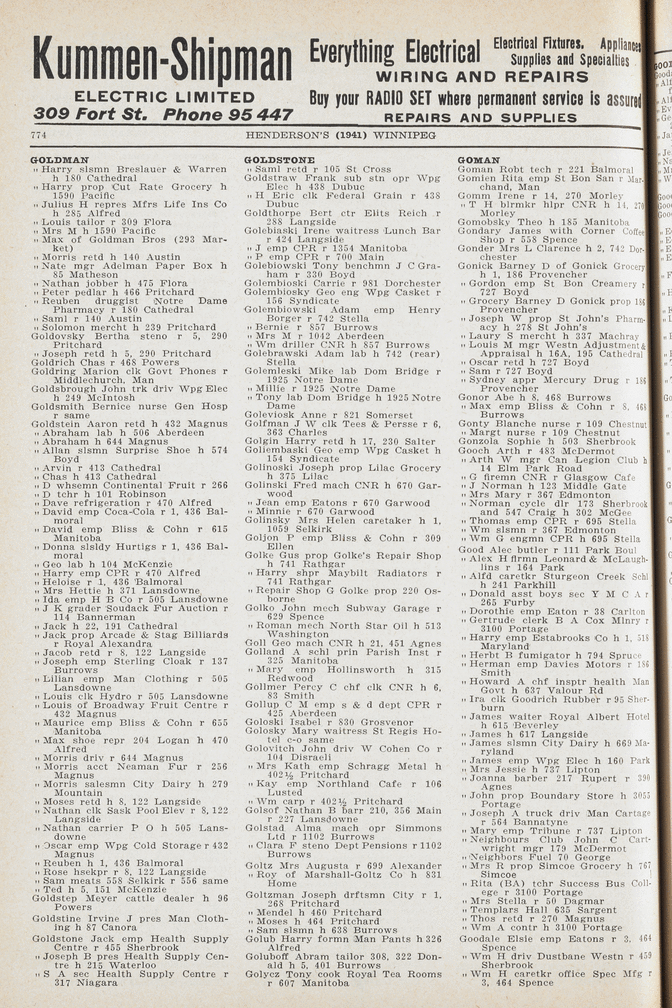 Kummen-Shipman
ELECTRIC LIMITED
309 Fort St. Phone 95 447
Everything Electrical
Electrical Fixtures, Appliances
Supplies and Specialties
WIRING AND REPAIRS
Buy your RADIO SET where permanent service is assured
REPAIRS AND SUPPLIES
774
HENDERSON'S (1941) WINNIPEG
GOLDMAN
" Harry slsmn Breslauer & Warren
h 180 Cathedral
" Harry prop Cut Rate Grocery h
1590 Pacific
" Julius H repres Mfrs Life Ins Co
h 285 Alfred
" Louis tailor r 309 Flora
" Mrs M h 1590 Pacific
" Max of Goldman Bros (293 Mar-
ket)
" Morris retd h 140 Austin
" Nate mgr Adelman Paper Box h
85 Matheson
" Nathan jobber h 475 Flora
" Peter pedlar h 466 Pritchard
" Reuben druggist Notre Dame
Pharmacy r 180 Cathedral
" Saml r 140 Austin
" Solomon mercht h 239 Pritchard
Goldovsky Bertha steno r 5, 290
Pritchard
" Joseph retd h 5, 290 Pritchard
Goldrich Chas r 468 Powers
Goldring Marion clk Govt Phones r
Middlechurch, Man
Goldsbrough John trk driv Wpg Elec
h 249 McIntosh
Goldsmith Bernice nurse Gen Hosp
r same
Goldstein Aaron retd h 432 Magnus
" Abraham lab h 506 Aberdeen
" Abraham h 644 Magnus
" Allan slsmn Surprise Shoe h 574
Boyd
" Arvin r 413 Cathedral
" Chas h 413 Cathedral
" D whsemn Continental Fruit r 266
" D tchr h 101 Robinson
" Dave refrigeration r 470 Alfred
" David emp Coca-Cola r 1, 436 Bal-
moral
" David emp Bliss & Cohn r 615
Manitoba
" Donna slsldy Hurtigs r 1, 436 Bal-
moral
" Geo lab h 104 McKenzie
" Harry emp CPR r 470 Alfred
" Heloise r 1, 436 Balmoral
" Mrs Hettie h 371 Lansdowne
" Ida emp H B Co r 505 Lansdowne
" J K grader Soudack Fur Auction r
114 Bannerman
" Jack h 22, 191 Cathedral
" Jack prop Arcade & Stag Billiards
r Royal Alexandra
" Jacob retd r 8, 122 Langside
" Joseph emp Sterling Cloak r 137
Burrows
" Lilian emp Man Clothing r 505
Lansdowne
" Louis clk Hydro r 505 Lansdowne
" Louis of Broadway Fruit Centre r
432 Magnus
" Maurice emp Bliss & Cohn r 655
Manitoba
" Max shoe repr 204 Logan h 470
Alfred
" Morris driv r 644 Magnus
" Morris acct Neaman Fur r 256
Magnus
" Morris salesmn City Dairy h 279
Mountain
" Moses retd h 8, 122 Langside
" Nathan clk Sask Pool Elev r 8, 122
Langside
" Nathan carrier P O h 505 Lans-
downe
" Oscar emp Wpg Cold Storage r 432
Magnus
" Reuben h 1, 436 Balmoral
" Rose hsekpr r 8, 122 Langside
" Sam meats 558 Selkirk r 556 same
" Ted h 5, 151 McKenzie
Goldstep Meyer cattle dealer h 96
Powers
Goldstine Irvine J pres Man Cloth-
ing h 87 Canora
Goldstone Jack emp Health Supply
Centre r 455 Sherbrook
" Joseph B pres Health Supply Cen-
tre h 215 Waterloo
" S A sec Health Supply Centre r
317 Niagara
GOLDSTONE
" Saml retd r 105 St Cross
Goldstraw Frank sub stn opr Wpg
Elec h 438 Dubuc
" H Eric clk Federal Grain r 438
Dubuc
Goldthorpe Bert ctr Elits Reich r
288 Langside
Golebiaski Irene waitress Lunch Bar
r 424 Langside
" J emp CPR r 1354 Manitoba
" P emp CPR r 700 Main
Golebiowski Tony benchmn J C Gra-
ham r 330 Boyd
Golembioski Carrie r 981 Dorchester
Golembiosky Geo eng Wpg Casket r
156 Syndicate
Golembiowski Adam emp Henry
Borger r 742 Stella
" Bernie r 857 Burrows
" Mrs M r 1042 Aberdeen
" Wm driller CNR h 857 Burrows
Golebrawski Adam lab h 742 (rear)
Stella
Golemleski Mike lab Dom Bridge r
1925 Notre Dame
" Millie r 1925 Notre Dame
" Tony lab Dom Bridge h 1925 Notre
Dame
Goleviosk Anne r 821 Somerset
Golfman J W clk Tees & Persse r 6,
363 Charles
Golgin Harry retd h 17, 230 Salter
Goliembaski Geo emp Wpg Casket h
154 Syndicate
Golinoski Joseph prop Lilac Grocery
h 375 Lilac
Golinski Fred mach CNR h 670 Gar-
wood
" Jean emp Eatons r 670 Garwood
" Minnie r 670 Garwood
Golinsky Mrs Helen caretaker h 1,
1059 Selkirk
Goljon P emp Bliss & Cohn r 309
Ellen
Golke Gus prop Golke's Repair Shop
h 741 Rathgar
" Harry shpr Maybilt Radiators r
741 Rathgar
" Repair Shop G Golke prop 220 Os-
borne
Golko John mech Subway Garage r
629 Spence
" Roman mech North Star Oil h 513
Washington
Goll Geo mach CNR h 21, 451 Agnes
Golland A schl prin Parish Inst r
325 Manitoba
" Mary emp Hollinsworth h 315
Redwood
Gollmer Percy C chf clk CNR h 6,
83 Smith
Gollup C M emp s & d dept CPR r
425 Aberdeen
Goloski Isabel r 830 Grosvenor
Golosky Mary waitress St Regis Ho-
tel c-o same
Golovitch John driv W Cohen Co r
104 Disraeli
" Mrs Kath emp Schragg Metal h
402½ Pritchard
" Kay emp Northland Cafe r 106
Lusted
" Wm carp r 402½ Pritchard
Golsof Nathan B barr 210, 356 Main
r 227 Lansdowne
Golstad Alma mach opr Simmons
Ltd r 1102 Burrows
" Clara F steno Dept Pensions r 1102
Burrows
Goltz Mrs Augusta r 699 Alexander
" Roy of Marshall-Goltz Co h 831
Home
Goltzman Joseph drftsmn City r 1,
268 Pritchard
" Mendel h 460 Pritchard
" Moses h 464 Pritchard
" Sam slsmn h 638 Burrows
Golub Harry formn Man Pants h 326
Alfred
Goluboff Abram tailor 308, 322 Don-
ald h 5, 401 Burrows
Golycz Tony cook Royal Tea Rooms
r 607 Manitoba
GOMAN
Goman Robt tech r 221 Balmoral
Gomien Rita emp St Bon San r Mar-
chand, Man
Gomm Irene r 14, 270 Morley
" T H blrmkr hlpr CNR h 14, 270
Morley
Gomobsky Theo h 185 Manitoba
Gondary James with Corner Coffee
Shop r 558 Spence
Gonder Mrs L Clarence h 2, 742 Dor-
chester
Gonick Barney D of Gonick Grocery
h 1, 186 Provencher
" Gordon emp St Bon Creamery r
727 Boyd
" Grocery Barney D Gonick prop 186
Provencher
" Joseph W prop St John's Pharm-
acy h 278 St John's
" Laury S mercht h 337 Machray
" Louis M mgr Westn Adjustment &
Appraisal h 16A, 195 Cathedral
" Oscar retd h 727 Boyd
" Sam r 727 Boyd
" Sydney appr Mercury Drug r 186
Provencher
Gonor Abe h 8, 468 Burrows
" Max emp Bliss & Cohn r 8, 468
Burrows
Gonty Blanche nurse r 109 Chestnut
" Margt nurse r 109 Chestnut
Gonzola Sophie h 503 Sherbrook
Gooch Arth r 483 McDermot
" Arth W mgr Can Legion Club h
14 Elm Park Road
" G firemn CNR r Glasgow Cafe
" J Norman h 123 Middle Gate
" Mrs Mary r 367 Edmonton
" Norman cycle dlr 173 Sherbrook
and 547 Craig h 302 McGee
" Thomas emp CPR r 695 Stella
" Wm slsmn r 367 Edmonton
" Wm G engmn CPR h 695 Stella
Good Alec butler r 111 Park Boul
" Alex H firmn Leonard & McLaugh-
lins r 164 Park
" Alfd caretkr Sturgeon Creek Schl
h 241 Parkhill
" Donald asst boys sec Y M C A r
265 Furby
" Dorothie emp Eaton r 38 Carlton
" Gertrude clerk B A Cox Mlnry r
3100 Portage
" Harry emp Estabrooks Co h 1, 518
Maryland
" Herbt B fumigator h 794 Spruce
" Herman emp Davies Motors r 186
Smith
" Howard A chf insptr health Man
Govt h 637 Valour Rd
" Ira clk Goodrich Rubber r 95 Sher-
burn
" James waiter Royal Albert Hotel
h 615 Beverley
" James h 617 Langside
" James slsmn City Dairy h 669 Ma-
ryland
" James emp Wpg Elec h 160 Park
" Mrs Jessie h 737 Lipton
" Joanna barber 217 Rupert r 390
Agnes
" John prop Boundary Store h 3055
Portage
" Joseph A truck driv Man Cartage
r 564 Bannatyne
" Mary emp Tribune r 737 Lipton
" Neighbours Club John C Cart-
wright mgr 179 McDermot
" Neighbors Fuel 70 George
" Mrs R prop Simcoe Grocery h 767
Simcoe
" Rita (BA) tchr Success Bus Coll-
ege r 3100 Portage
" Mrs Stella r 50 Dagmar
" Templars Hall 635 Sargent
" Thos retd r 270 Magnus
" Wm A contr h 3100 Portage
Goodale Elsie emp Eatons r 3, 464
Spence
" Wm H driv Dustbane Westn r 459
Sherbrook
" Wm H caretkr office Spec Mfg r
3, 464 Spence